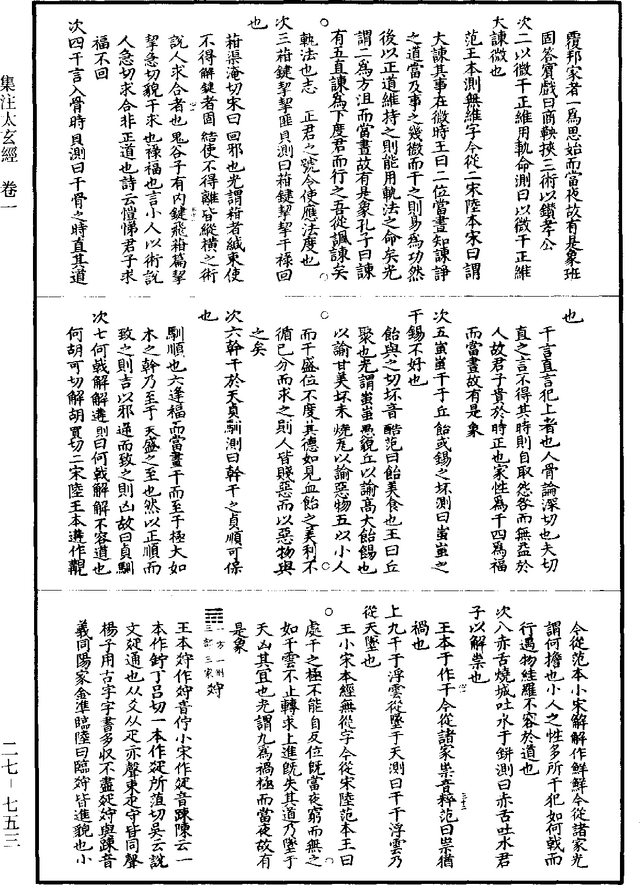 集注太玄經　卷一
二七－七五三
覆邦家者一為思始而當夜故有是象班
固答賓戲曰商鞅挾三術以鑽孝公
次二以微干正維用軌命測曰以微干正維
大諫微也
范王本測無維字今從二宋陸本宋曰謂
大諫其事在微時王曰二位當晝知諫諍
之道當及事之幾微而干之則易為功然
後以正道維持之則能用軌法之命矣光
謂二為方沮而當晝故有是象孔子曰諫
有五直諫為下度君而行之吾從諷諫矣
軌法也志　正君之號令使應法度也
次三箝鍵挈挈匪貝測曰箝鍵挈挈干祿回
也
箝渠淹切宋曰回邪也光謂箝者緘束使
不得解鍵者固結使不得離皆縱橫之術
說人求合者也鬼谷子有內鍵飛箝篇挈
挈急切貌干求也祿福也言小人以術說
人急切求合非正道也詩云愷悌君子求
福不回
次四干言入骨時貞測曰干骨之時直其道
也
干言直言犯上者也入骨論深切也夫切
直之言不得其時則自取怨咎而無益於
人故君子貴於時正也家性為干四為福
而當晝故有是象
次五蚩蚩干于丘飴或錫之坏測曰蚩蚩之
干錫不好也
飴與之切坏音醅范曰飴美食也王曰丘
聚也光謂蚩蚩愚貌丘以諭高大飴餳也
以諭甘美坏未燒瓦以諭惡物五以小人
而干盛位不度其德如見血飴之美利不
循己分而求之則人皆賤惡而以惡物與
之矣
次六幹干於天貞馴測曰幹干之貞順可保
也
馴順也六逢福而當晝干而至于極大如
木之幹乃至于天盛之至也然以正順而
致之則吉以邪逆而致之則凶故曰貞馴
次七何戟解解遘測曰何戟解解不容道也
何胡可切解胡買切二宋陸王本遘作覯
今從范本小宋解解作鮮鮮今從諸家光
謂何擔也小人之性多所干犯如何戟而
行遇物絓羅不容於道也
次八赤舌燒城吐水于缾測曰赤舌吐水君
子以解祟也
王本干作于今從諸家祟音粹范曰祟猶
禍也
上九干于浮雲從墜于天測曰干干浮雲乃
從天墜也
王小宋本經無從字今從宋陸范本王曰
處干之極不能自反位既當夜窮而無之
如干雲不止轉求上進既失其道乃墜于
天凶其宜也光謂九為禍極而當夜故有
是象
一方一州
三部三家
王本㺵作㺵音佇小宋作㺵音踈陳云一
本作𨥧丁呂切一本作㺵所菹切吳云說
文㺵通也从爻从疋亦聲東疋守皆同聲
楊子用古字字書多收不盡㺵㺵與踈音
義同陽家金準臨陸曰臨㺵皆進貌也小